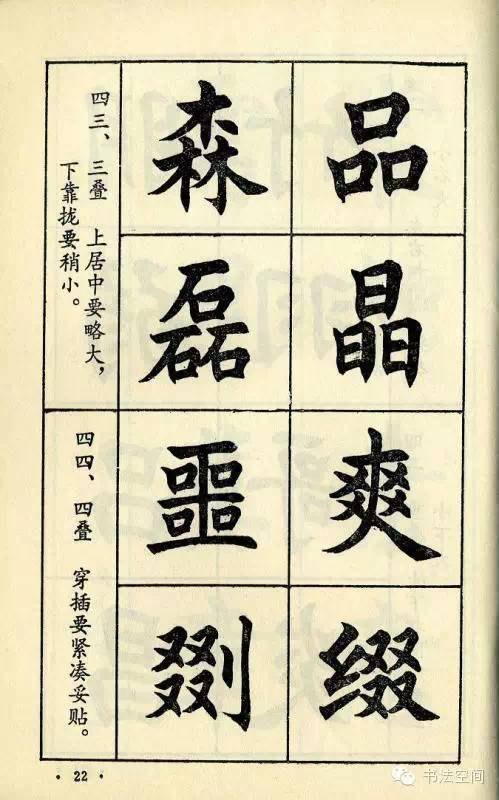 品
晶
森
磊
四三、三叠 上居中要略大，
下靠拢要稍小。
爽
缀
噩
剟
四四、四叠 穿插要紧凑妥贴。
· 22 ·
书法空间